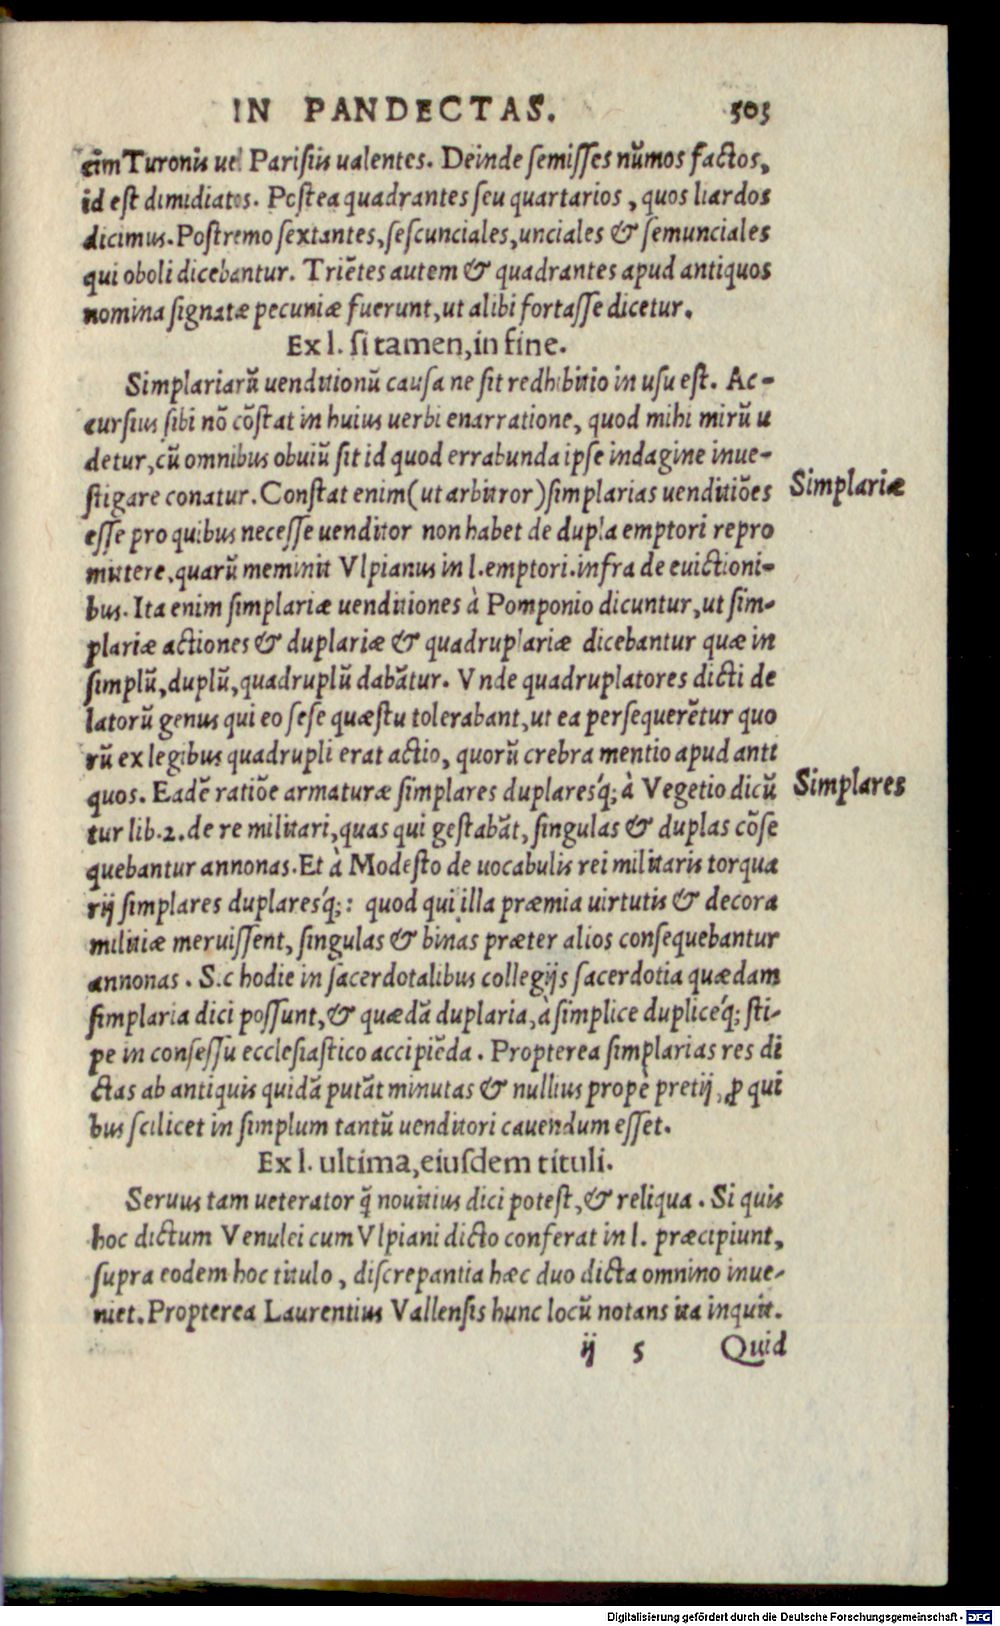 IN PANDECTAS. 503
cim Turonis uel Parisiis ualentes. Deinde semisses nūmos factos,
id est dimidiatos. Postea quadrantes seu quartarios, quos liardos
dicimus. Postremo sextantes, sescunciales, unciales & semunciales
qui oboli dicebantur. Triētes autem & quadrantes apud antiquos
nomina signatæ pecuniæ fuerunt, ut alibi fortasse dicetur.
Ex l. si tamen, in fine.
Simplariarū uenditionū causa ne sit redhibitio in usu est. Ac-
cursius sibi nō cōstat in huius uerbi enarratione, quod mihi mirū u
detur, cū omnibus obuiū sit id quod errabunda ipse indagine inue-
stigare conatur. Constat enim (ut arbitror) simplarias uenditiōes
Simplariæ
esse pro quibus necesse uenditor non habet de dupla emptori repro
mittere, quarū meminit Vlpianus in l. emptori. infra de euictioni-
bus. Ita enim simplariæ uenditiones à Pomponio dicuntur, ut sim-
plariæ actiones & duplariæ & quadruplariæ dicebantur quæ in
simplū, duplū, quadruplū dabātur. Vnde quadruplatores dicti de
latorū genus qui eo sese quæstu tolerabant, ut ea persequerētur quo
rū ex legibus quadrupli erat actio, quorū crebra mentio apud anti
quos. Eadē ratiōe armaturæ simplares duplaresq́; à Vegetio dicū
Simplares
tur lib. 2. de re militari, quas qui gestabāt, singulas & duplas cōse
quebantur annonas. Et à Modesto de uocabulis rei militaris torqua
rij simplares duplaresq́;: quod qui illa præmia uirtutis & decora
militiæ meruissent, singulas & binas præter alios consequebantur
annonas. Sic hodie in sacerdotalibus collegijs sacerdotia quædam
simplaria dici possunt, & quædā duplaria, à simplice dupliceq́; sti-
pe in consessu ecclesiastico accipiēda. Propterea simplarias res di
ctas ab antiquis quidā putāt minutas & nullius propè pretij, ꝓ qui
bus scilicet in simplum tantū uenditori cauendum esset.
Ex l. ultima, eiusdem tituli.
Seruus tam ueterator q̄ nouitius dici potest, & reliqua. Si quis
hoc dictum Venulei cum Vlpiani dicto conferat in l. præcipiunt,
supra eodem hoc titulo, discrepantia hæc duo dicta omnino inue-
niet. Propterea Laurentius Vallensis hunc locū notans ita inquit.
ij 5 Quid
Digitalisierung gefördert durch die Deutsche Forschungsgemeinschaft - DFG